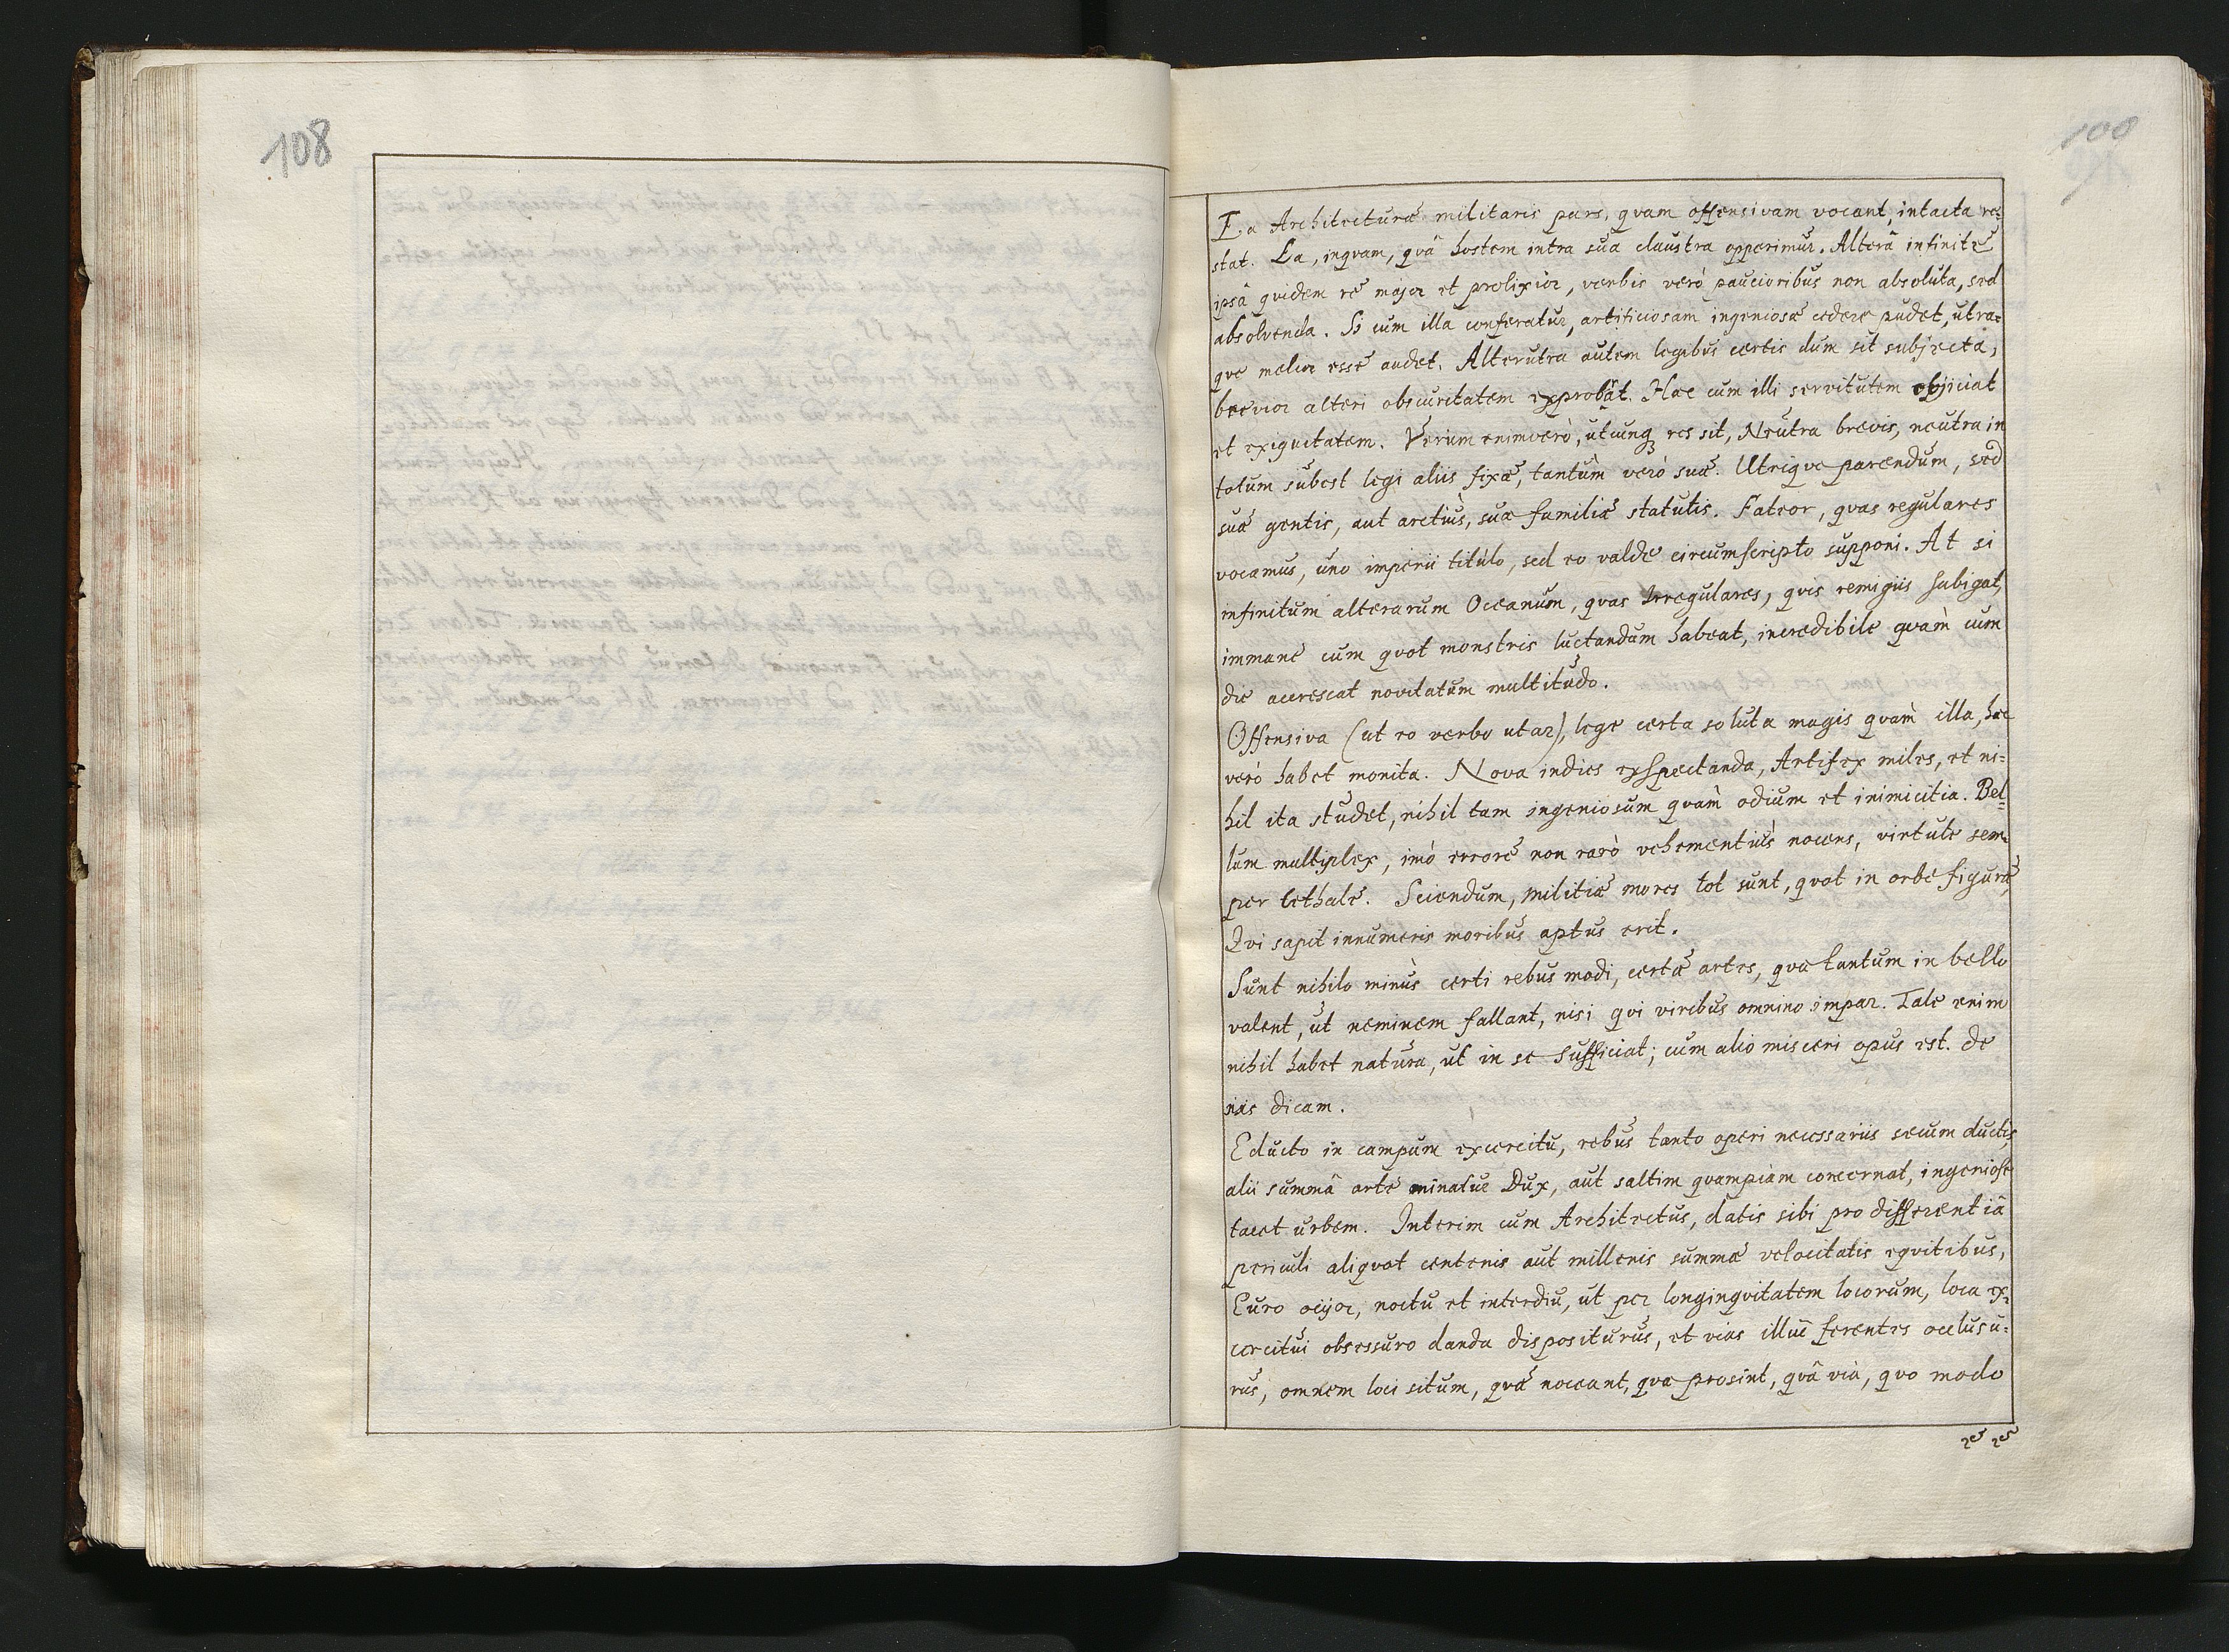 108
100
Ea Architecturæ militaris pars, qvam offensivam vocant, intacta re-
stat. Ea, inqvam, qvâ hostem intra sua claustra opperimur. Alterâ infinitè
ipsâ qvidem re major et prolixior, verbis verò paucioribus non absoluta, sed
absolvenda. Si cum illa conferatur, artificiosam ingeniosæ cedere pudet, utra-
qve melior esse audet. Alterutra autem legibus certis dum sit subjecta,
brevior alteri obscuritatem exprobat. Hæc cum illi servitutem objiciat
et exiguitatem. Verum enimverò, utcunq; res sit, Neutra brevis, neutra in
totum subest legi aliis fixæ, tantùm verò suæ. Utriqve parendum, sed
suæ gentis, aut arctiùs, suæ familiæ statutis. Fateor, qvas regulares
vocamus, uno imperii titulo, sed eo valde circumscripto supponi. At si
infinitum alterarum Oceanum, qvas Irregulares, qvis remigiis subigat,
immane cum qvot monstris luctandum habeat, incredibile qvàm cum
die accrescat novitatum multitudo.
Offensiva (ut eo verbo utar), lege certa soluta magis qvàm illa, hæc
verò habet monita. Nova indies exspectanda, Artifex miles, et ni-
hil ita studet, nihil tam ingeniosum qvàm odium et inimicitia. Bel-
lum multiplex, imò errore non rarò vehementiùs nocens, virtute sem-
per lethale. Sciendum, militiæ mores tot sunt, qvot in orbe figuræ
Qvi sapit innumeris moribus aptus erit.
Sunt nihilo minùs certi rebus modi, certæ artes, qvæ tantum in bello
valent, ut neminem fallant, nisi qvi viribus omnino impar. Tale enim
nihil habet natura, ut in se sufficiat; cum alio misceri opus est. de
iis dicam.
Educto in campum excercitu, rebus tanto operi necessariis secum ductis
alii summâ arte minatur Dux, aut saltim qvampiam concernat, ingeniose
tacet urbem. Interim cum Architectus, datis sibi pro differentiâ
periculi aliqvot centenis aut millenis summæ velocitatis eqvitibus,
Euro ocyor, noctu et interdiu, ut per longinqvitatem locorum, loca ex-
cercitui obsessuro danda dispositurus, et vias illuc ferentes occlusu-
rus, omnem loci situm, qvæ noceant, qvæ prosint, qvâ viâ, qvo modo